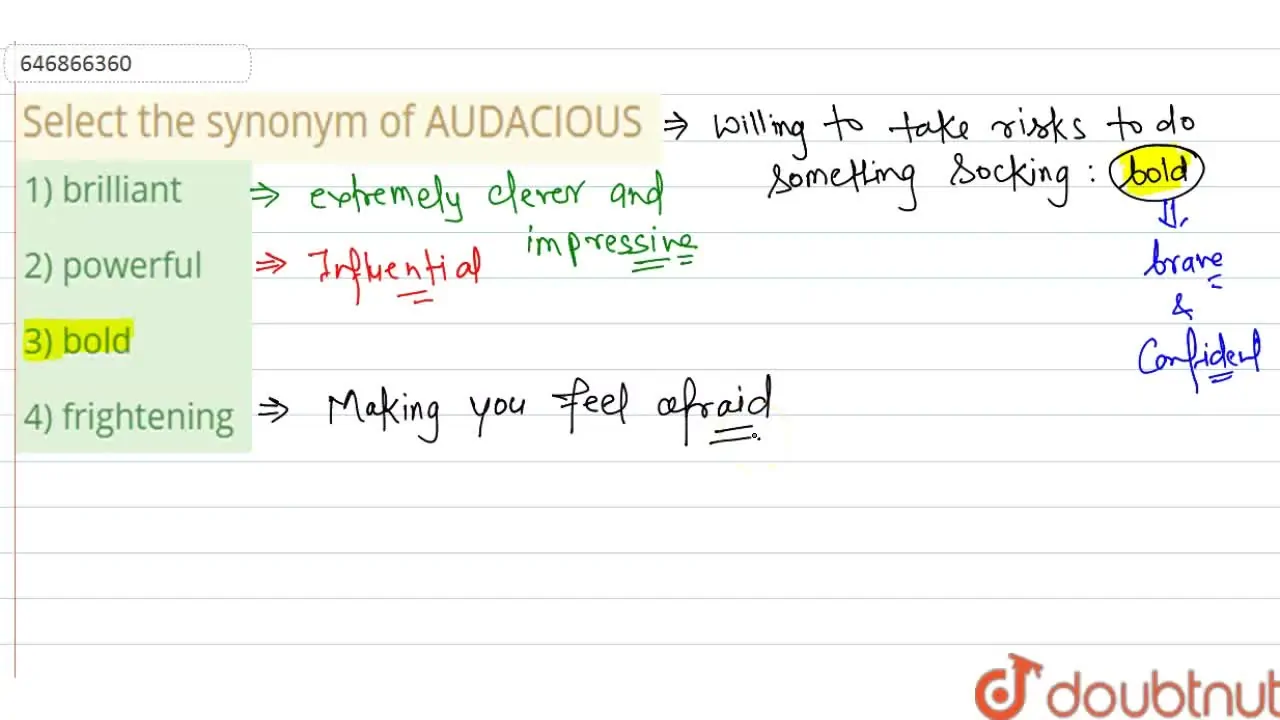 646866360
Select the synonym of AUDACIOUS ⇒ willing to take risks to do
something socking : bold
1) brilliant ⇒ extremely clever and
impressive
⇓
brave
&
Confident
2) powerful ⇒ Influential
3) bold
4) frightening ⇒ Making you feel afraid
doubtnut